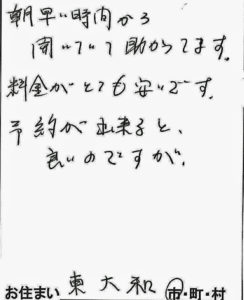 朝早い時間から
開いていて助かってます。
料金がとても安いです。
予約が出来ると、
良いのですが。
お住まい 東大和 市・町・村